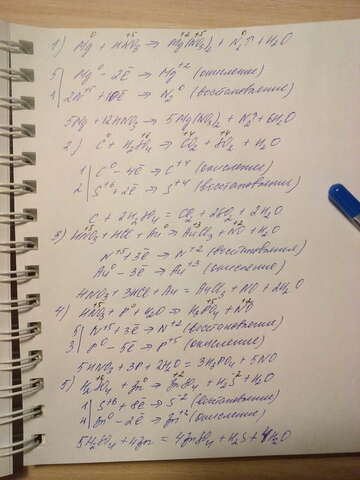 1) Mg⁰ + HN⁺⁵O₃ → Mg⁺²(N⁺⁵O₃)₂ + N₂⁰↑ + H₂O
5 | Mg⁰ - 2ē → Mg⁺² (окисление)
1 | 2N⁺⁵ + 10ē → N₂⁰ (восстановление)
5Mg + 12HNO₃ → 5Mg(NO₃)₂ + N₂ + 6H₂O
2) C⁰ + H₂S⁺⁶O₄ → C⁺⁴O₂ + S⁺⁴O₂ + H₂O
1 | C⁰ - 4ē → C⁺⁴ (окисление)
2 | S⁺⁶ + 2ē → S⁺⁴ (восстановление)
C + 2H₂SO₄ = CO₂ + 2SO₂ + 2H₂O
3) HN⁺⁵O₃ + HCl + Au⁰ → Au⁺³Cl₃ + N⁺²O + H₂O
N⁺⁵ + 3ē → N⁺² (восстановление)
Au⁰ - 3ē → Au⁺³ (окисление)
HNO₃ + 3HCl + Au = AuCl₃ + NO + 2H₂O
4) HN⁺⁵O₃ + P⁰ + H₂O → H₃P⁺⁵O₄ + N⁺²O
5 | N⁺⁵ + 3ē → N⁺² (восстановление)
3 | P⁰ - 5ē → P⁺⁵ (окисление)
5HNO₃ + 3P + 2H₂O = 3H₃PO₄ + 5NO
5) H₂S⁺⁶O₄ + Zn⁰ → Zn⁺²SO₄ + H₂S⁻² + H₂O
1 | S⁺⁶ + 8ē → S⁻² (восстановление)
4 | Zn⁰ - 2ē → Zn⁺² (окисление)
5H₂SO₄ + 4Zn = 4ZnSO₄ + H₂S + 4H₂O